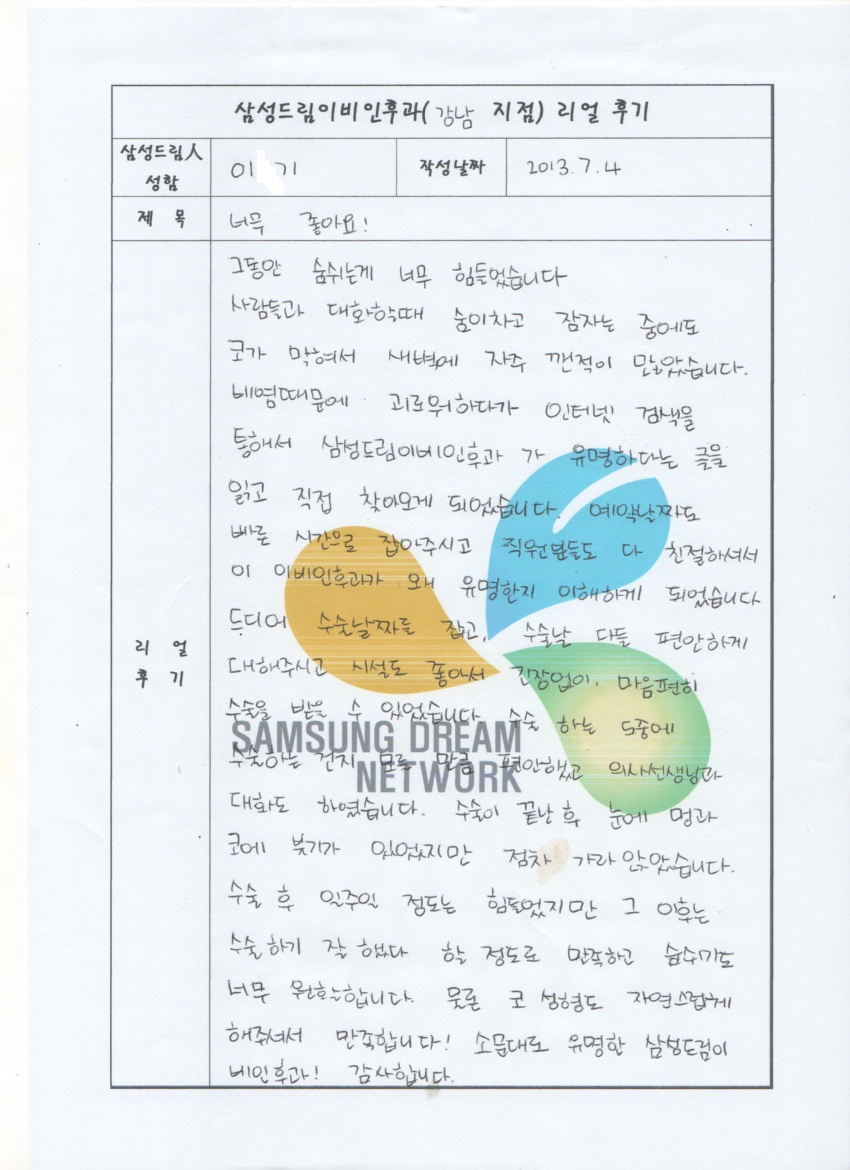 삼성드림이비인후과(강남 지점) 리얼 후기
삼성드림人 성함
이 기
작성날짜
2013.7.4
제 목
너무 좋아요!
리 얼 후 기
그동안 숨쉬는게 너무 힘들었습니다
사람들과 대화할때 숨이차고 잠자는 중에도
코가 막혀서 새벽에 자주 깬적이 많았습니다.
비염때문에 괴로워하다가 인터넷 검색을
통해서 삼성드림이비인후과 가 유명하다는 글을
읽고 직접 찾아오게 되었습니다. 예약날짜도
빠른 시간으로 잡아주시고 직원분들도 다 친절하셔서
이 이비인후과가 왜 유명한지 이해하게 되었습니다
드디어 수술날짜를 잡고, 수술날 다들 편안하게
대해주시고 시설도 좋아서 긴장없이, 마음편히
수술을 받을 수 있었습니다. 수술 하는 도중에
SAMSUNG DREAM
NETWORK
수술하는 건지 모를 만큼 편안했고 의사선생님과
대화도 하였습니다. 수술이 끝난 후 눈에 멍과
코에 붓기가 있었지만 점차 가라 앉았습니다.
수술 후 일주일 정도는 힘들었지만 그 이후는
수술하기 잘 했다 할 정도로 만족하고 숨쉬기도
너무 원활합니다. 물론 코 성형도 자연스럽게
해주셔서 만족합니다! 소문대로 유명한 삼성드림이
비인후과! 감사합니다.